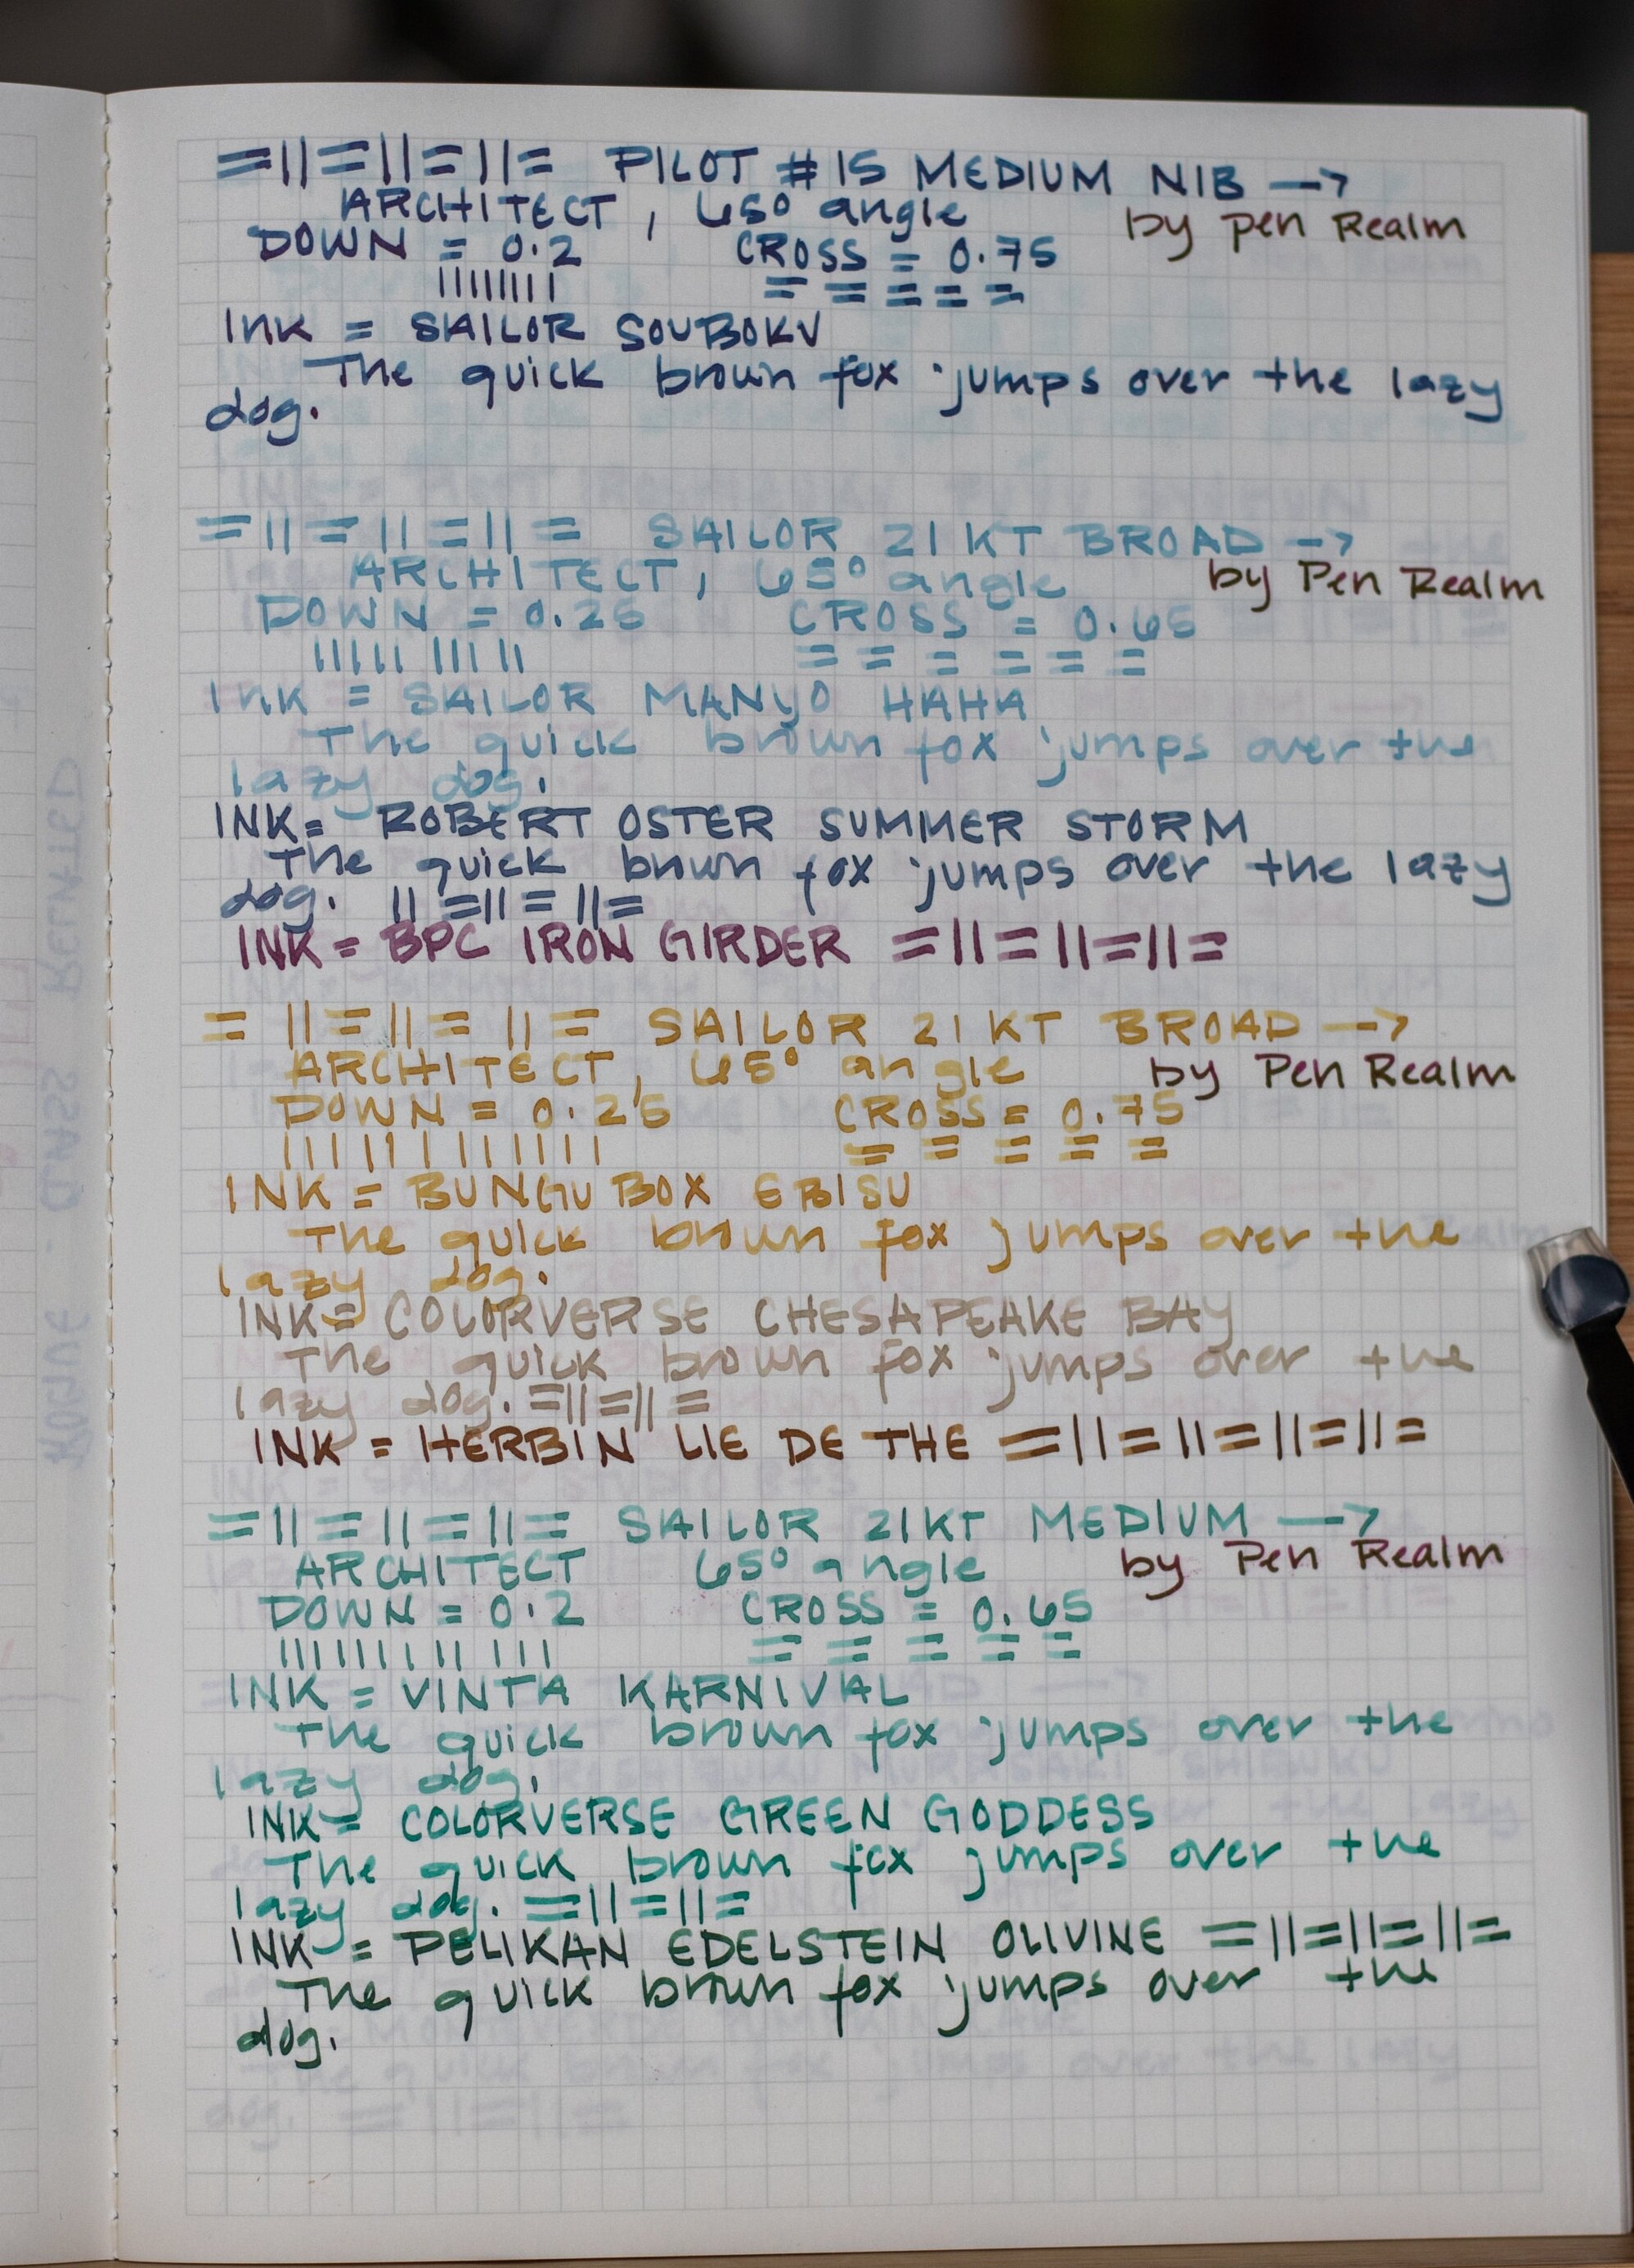 =||=||=||= PILOT #15 MEDIUM NIB →
ARCHITECT, 65° angle by Pen Realm
DOWN = 0.2 CROSS = 0.75
Ink = SAILOR SOUBOKU
The quick brown fox jumps over the lazy
dog.
=||=||=||= SAILOR 21KT BROAD →
ARCHITECT, 65° angle by Pen Realm
DOWN = 0.25 CROSS = 0.65
Ink = SAILOR MANYO HAHA
The quick brown fox jumps over the
lazy dog.
INK = ROBERT OSTER SUMMER STORM
The quick brown fox jumps over the lazy
dog. ||=||=||=
INK = BPC IRON GIRDER =||=||=||=
=||=||=||= SAILOR 21KT BROAD →
ARCHITECT, 65° angle by Pen Realm
DOWN = 0.25 CROSS = 0.75
INK = BUNGUBOX EBISU
The quick brown fox jumps over the
lazy dog.
INK = COLORVERSE CHESAPEAKE BAY
The quick brown fox jumps over the
lazy dog. =||=||=
INK = HERBIN LIE DE THE =||=||=||=||=
=||=||=||= SAILOR 21KT MEDIUM →
ARCHITECT 65° angle by Pen Realm
DOWN = 0.2 CROSS = 0.65
INK = VINTA KARNIVAL
The quick brown fox jumps over the
lazy dog.
INK = COLORVERSE GREEN GODDESS
The quick brown fox jumps over the
lazy dog. =||=||=
INK = PELIKAN EDELSTEIN OLIVINE =||=||=||=
The quick brown fox jumps over the
dog.